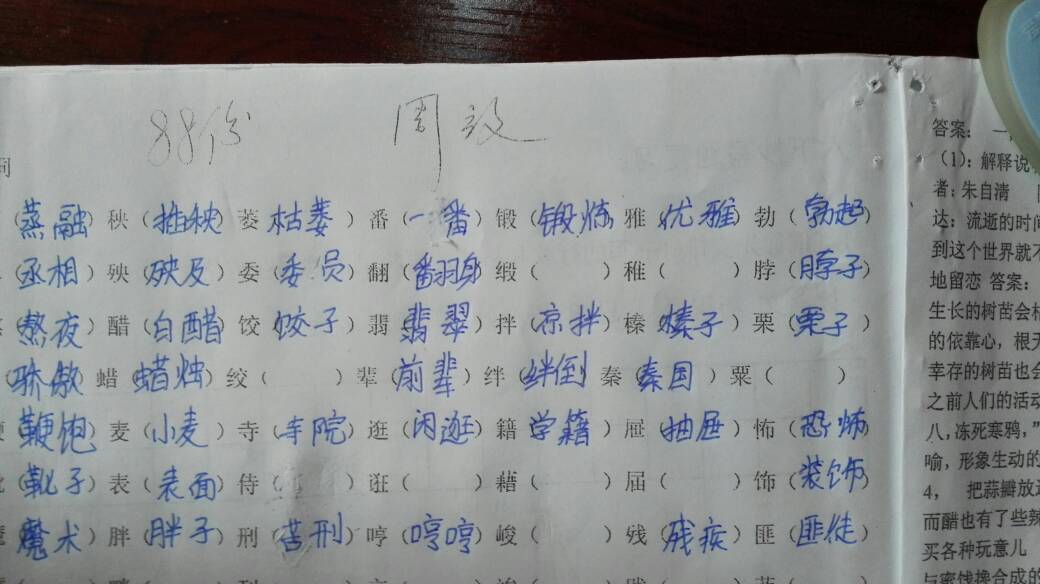 88份 周
词
（蒸融）秧（推秧）菱 枯萎）番（一番）锻（锻炼 雅 优雅）勃（勃起）
丞相）殃（殃及）委（委员 翻（翻身 缎（ ）稚（ ）脖（脖子）
（熬夜）醋（白醋 饺 饺子）翡 翡翠）拌（凉拌）榛（榛子）栗（栗子）
骄傲）蜡（蜡烛）绞（ ）辈（前辈）绊（绊倒 秦（秦国）粟（ ）
鞭炮）麦（小麦）寺（寺院）逛（闲逛）籍 学籍）屉（抽屉）怖（恐怖
靴子）表（表面）侍（ ）诳（ ）藉（ ）届（ ）饰（装饰
魔术）胖（胖子）刑（苦刑）哼（哼哼）峻（ ）残（残疾）匪（匪徒）
答案： 一
（1）：解释说
者：朱自清
达：流逝的时间
到这个世界就不
地留恋 答案：
生长的树苗会枯
的依靠心，根无
幸存的树苗也会
之前人们的活动
八，冻死寒鸦，”
喻，形象生动的
4， 把蒜瓣放
而醋也有了些辣
买各种玩意儿
与蜜饯搀合成的